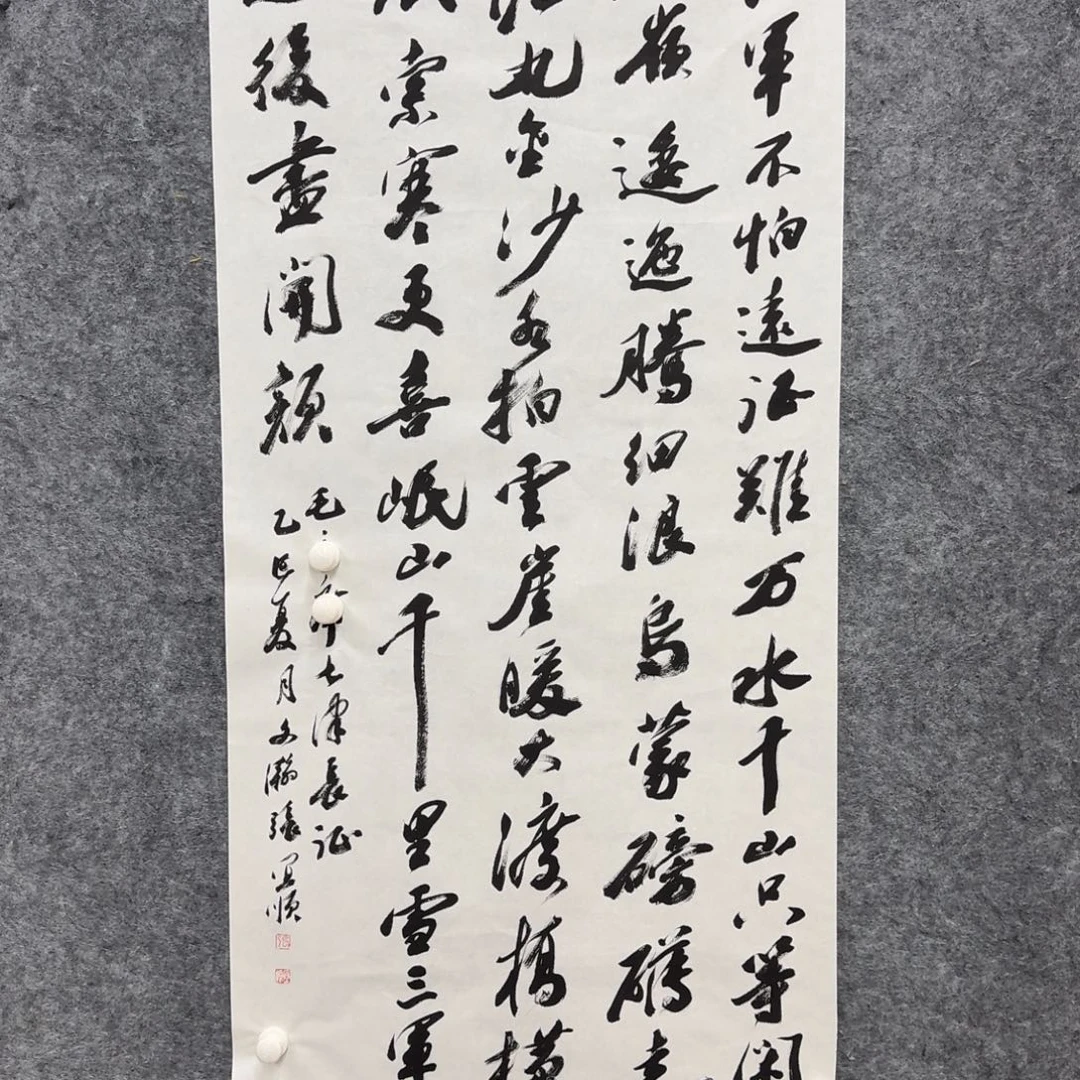 军不怕遠征難万水千山只等闲
嶺逶迤騰细浪烏蒙磅礴走
丸金沙水拍雲崖暖大渡橋横
索寒更喜岷山千里雪三軍
後盡開顏
毛 七律長征
乙巳夏月文瀚張 順